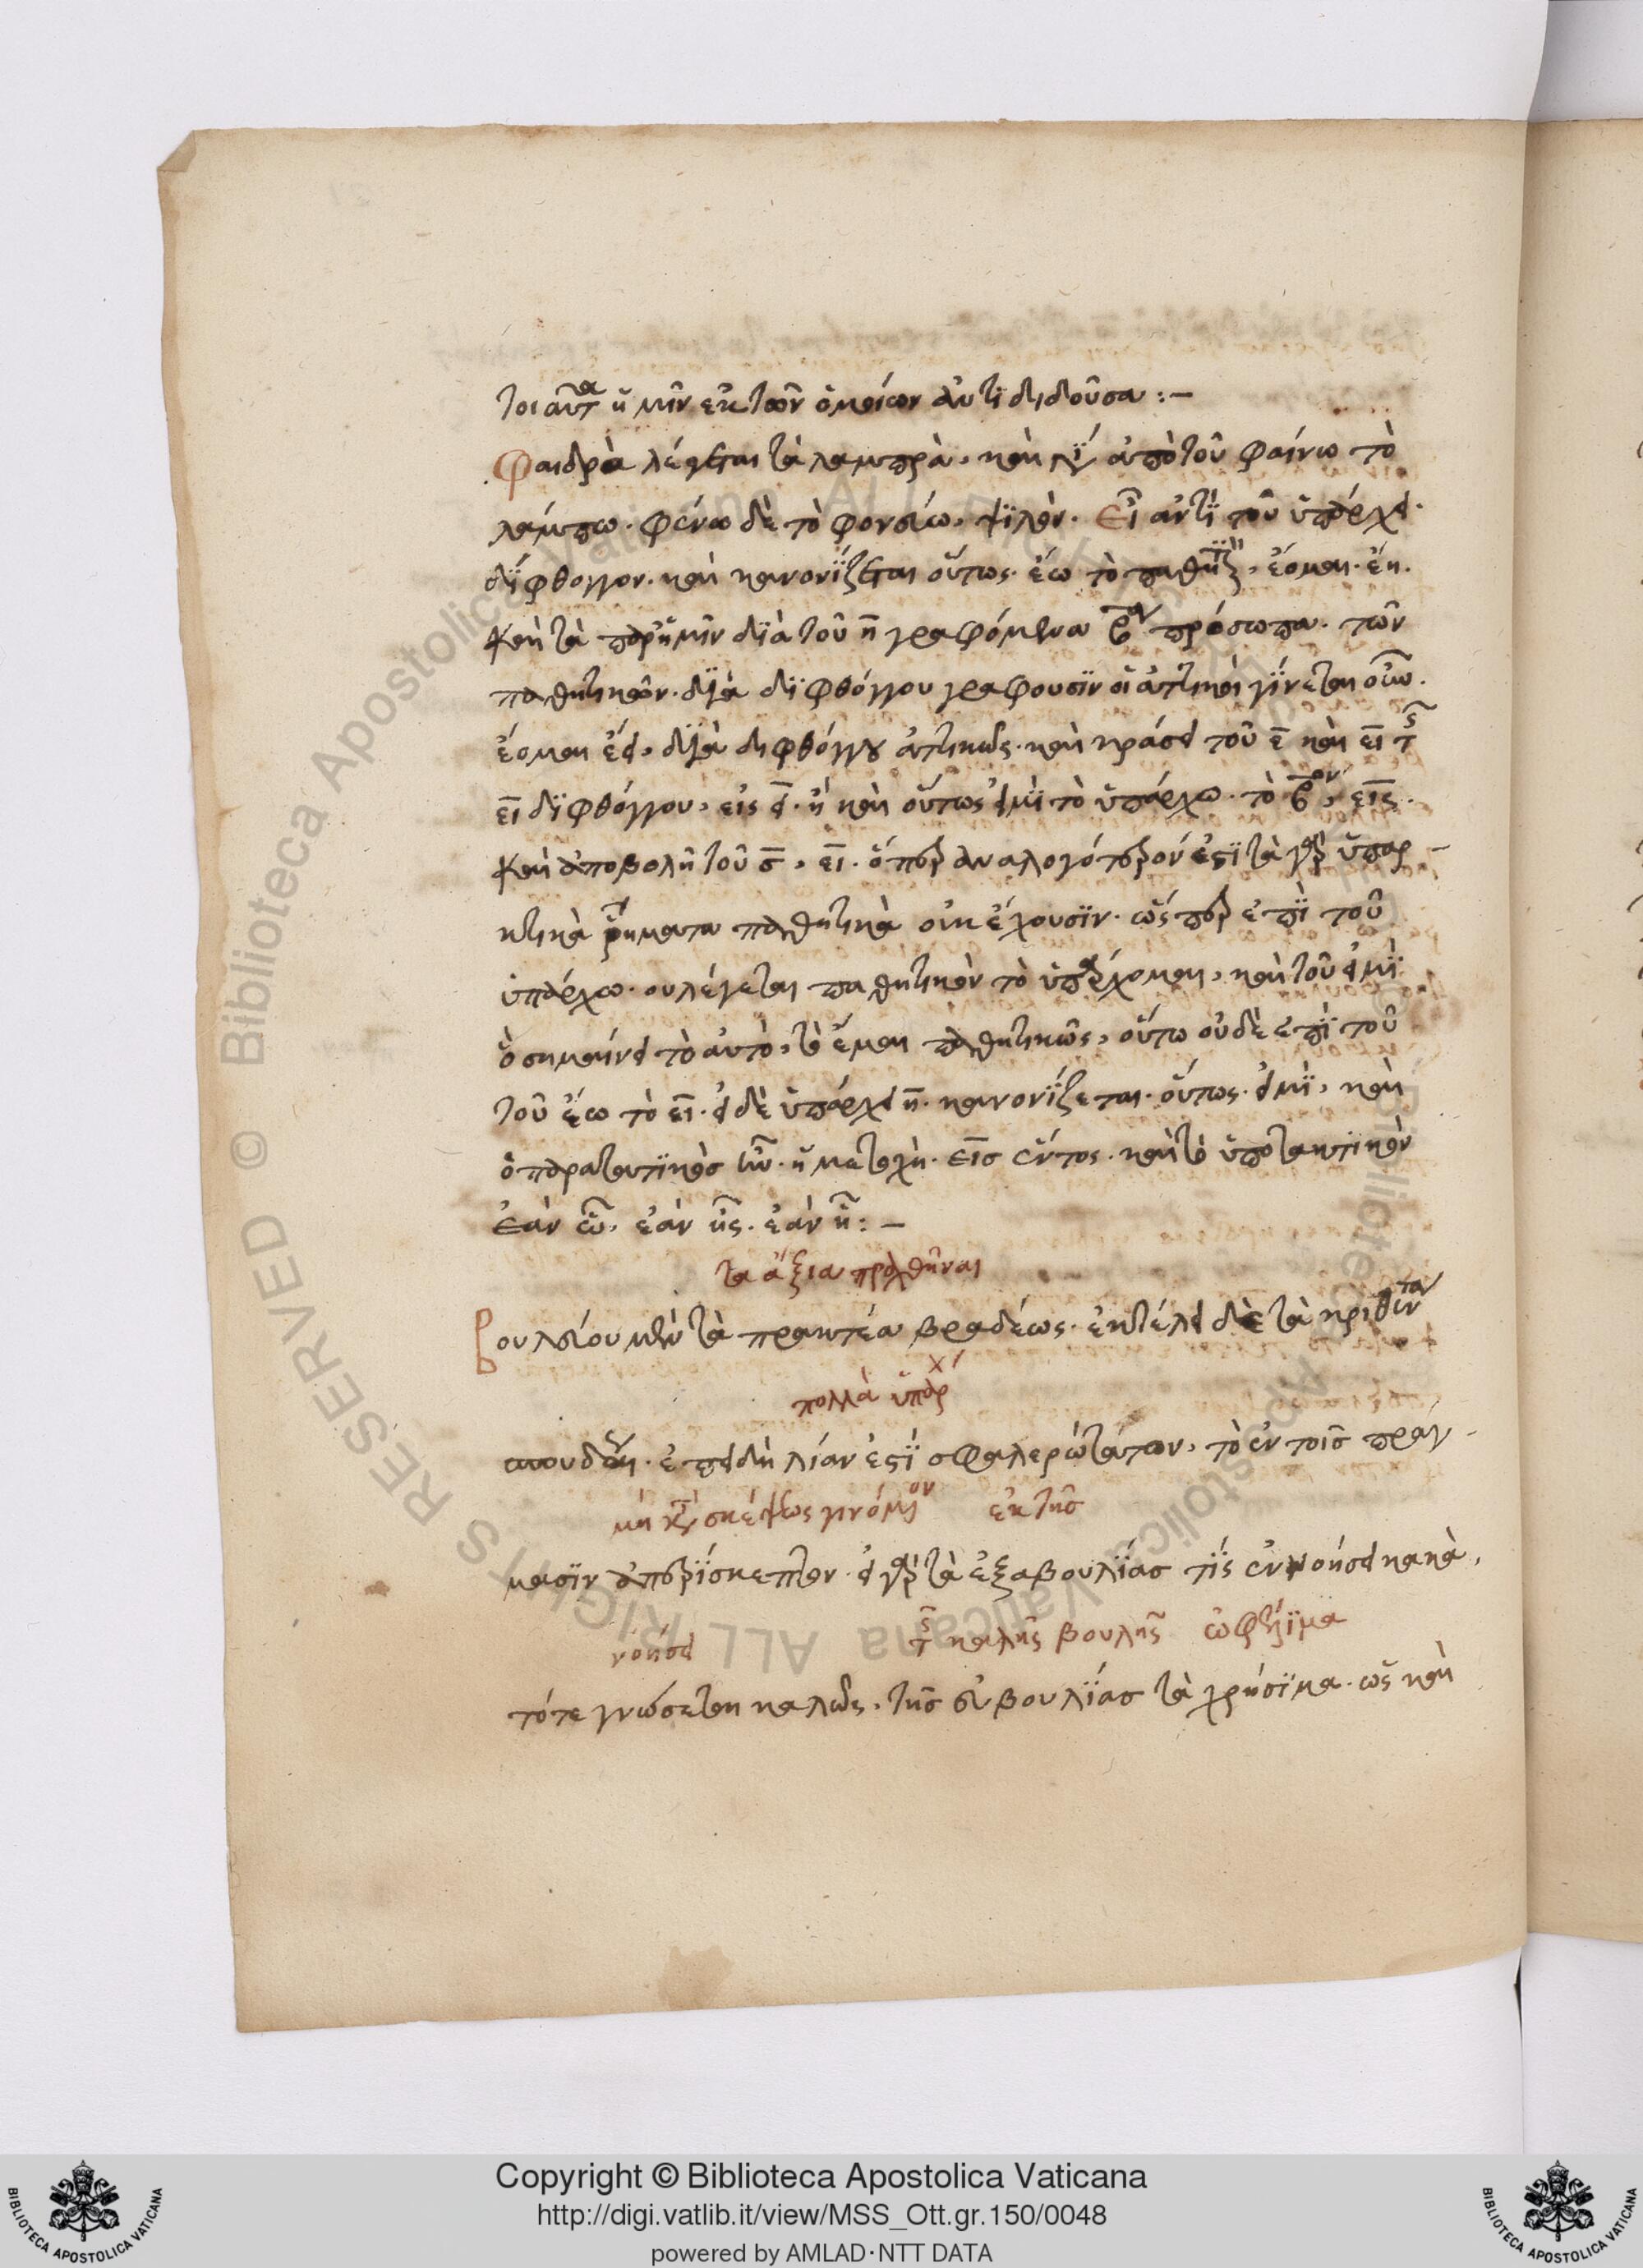 τοιαῦτα ἡμῖν ἐκ τῶν ὁμοίων ἀντιδιδοῦσα :–
Φαιδρὰ λέγεται τὰ λαμπρὰ, καὶ ἀπὸ τοῦ φαίνω τὸ
λάμπω. φένω δὲ τὸ φονεύω, ψϊλὸν. εἶ ἀντϊ τοῦ ὑπάρχει.
δΐφθογγον. καὶ κανονΐζεται οὕτως. ἕω τὸ, ἕομαι. ἕη.
καὶ τὰ παρ' ἡμῖν δϊὰ τοῦ η γραφόμενα β πρόσωπα. τῶν
παθητικῶν. δϊὰ δϊφθόγγου γραφουσϊν οἱ ἀττικοὶ γΐνεται οὖν.
ἕομαι ἕει, δϊὰ διφθόγγου ἀττικῶς. καὶ κράσει τοῦ ε καὶ ει τῆς
ει δϊφθόγγου, εἰς ει. ἢ καὶ οὕτως εἰμὶ τὸ ὑπάρχω. τὸ βον, εἶς.
καὶ ἀποβολῆ τοῦ σ, εἶ. ὅπερ ἀναλογότερόν ἐστϊ τὰ γὰρ ὑπαρ–
κτικὰ ῥήματα παθητικὰ οὐκ ἔχουσϊν. ὥσπερ ἐπϊ τοῦ
ὑπάρχω. ου λέγεται παθητικὸν τὸ ὑπάρχομαι, καὶ τοῦ εἰμϊ
ὃ σημαίνει τὸ αὐτὸ, τὸ ἔμαι παθητικῶς, οὕτω οὐδὲ ἐπϊ τοῦ
τοῦ ἕω τὸ εἶ. εἰ δὲ ὑπάρχει η. κανονΐζεται. οὕτως. εἰμϊ, καὶ
ὁ παρατατϊκὸσ ἦν. ἡ μετοχὴ. εἶσ ἔντος. καὶ τὸ ὑποτακτϊκὸν
ἐὰν ὦ, ἐὰν ᾖς. ἐὰν ᾖ :–
τα ἄξια πραχθῆναι
Βουλεύου μὲν τὰ πρακτέα βραδέως. ἐκτέλει δὲ τὰ κριθέντα
πολλὰ ὑπάρχ
σπουδαῖ. ἐπειδὴ λίαν ἐστΐ σφαλερώτατον, τὸ ἐν τοῖσ πράγ–
μὴ κατὰ σκέψεως γινόμενον ἐκ τῆσ
μασϊν ἀπερΐσκεπτον. εἰ γὰρ τὰ ἐξ αβουλΐασ τΐς ἐννοήσει κακὰ,
νοήσει τῆς καλῆς βουλῆς ὠφελήϊμα
τότε γνώσεται καλῶς, τῆσ εὐβουλΐασ τὰ χρήσϊμα. ὡς καὶ
Copyright © Biblioteca Apostolica Vaticana
http://digi.vatlib.it/view/MSS_Ott.gr.150/0048
powered by AMLAD·NTT DATA
BIBLIOTECA APOSTOLICA VATICANA
BIBLIOTECA APOSTOLICA VATICANA